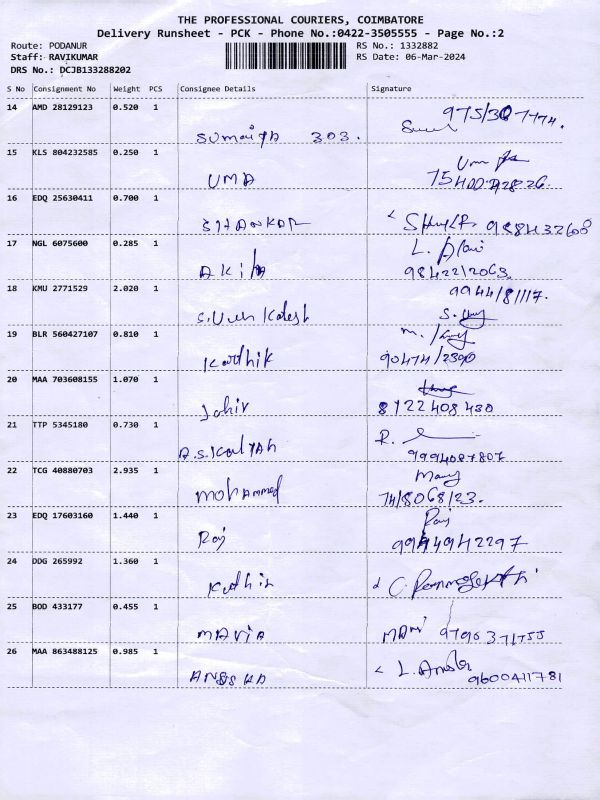 THE PROFESSIONAL COURIERS, COIMBATORE
Delivery Runsheet - PCK - Phone No.:0422-3505555 - Page No.:2
Route: PODANUR RS No.: 1332882
Staff: RAVIKUMAR RS Date: 06-Mar-2024
DRS No.: DCJB133288202
S No Consignment No Weight PCS Consignee Details Signature
14 AMD 28129123 0.520 1
303.
15 KLS 804232585 0.250 1
UMA
16 EDQ 25630411 0.700 1
SHANKAR
17 NGL 6075600 0.285 1
AKila
9842212063
18 KMU 2771529 2.020 1
9944181117.
19 BLR 560427107 0.810 1
Karthik
9047412390
20 MAA 703608155 1.070 1
8122408430
21 TTP 5345180 0.730 1
9994087807
22 TCG 40880703 2.935 1
mohammed
7418068123.
23 EDQ 17603160 1.440 1
Raj Raj
9944942297
24 DDG 265992 1.360 1
Kathir
25 BOD 433177 0.455 1
MARIA 9790371755
26 MAA 863488125 0.985 1
9600411781